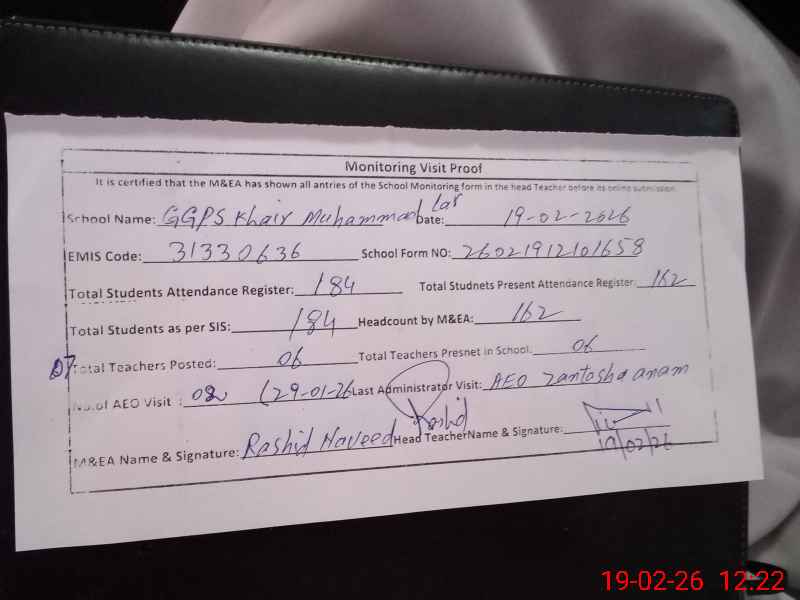 Monitoring Visit Proof
It is certified that the M&EA has shown all antries of the School Monitoring form in the head Teacher before its online submission.
School Name: GGPS Khair Muhammad Lar Date: 19-02-2026
EMIS Code: 31330636 School Form NO: 26021912101658
Total Students Attendance Register: 184 Total Studnets Present Attendance Register: 162
Total Students as per SIS: 184 Headcount by M&EA: 162
Total Teachers Posted: 06 Total Teachers Presnet in School: 06
No.of AEO Visit : 02 (29-01-26 Last Administrator Visit: AEO Zantasha anam
M&EA Name & Signature: Rashid Naveed Rashid Head TeacherName & Signature:
19/02/26
19-02-26 12:22